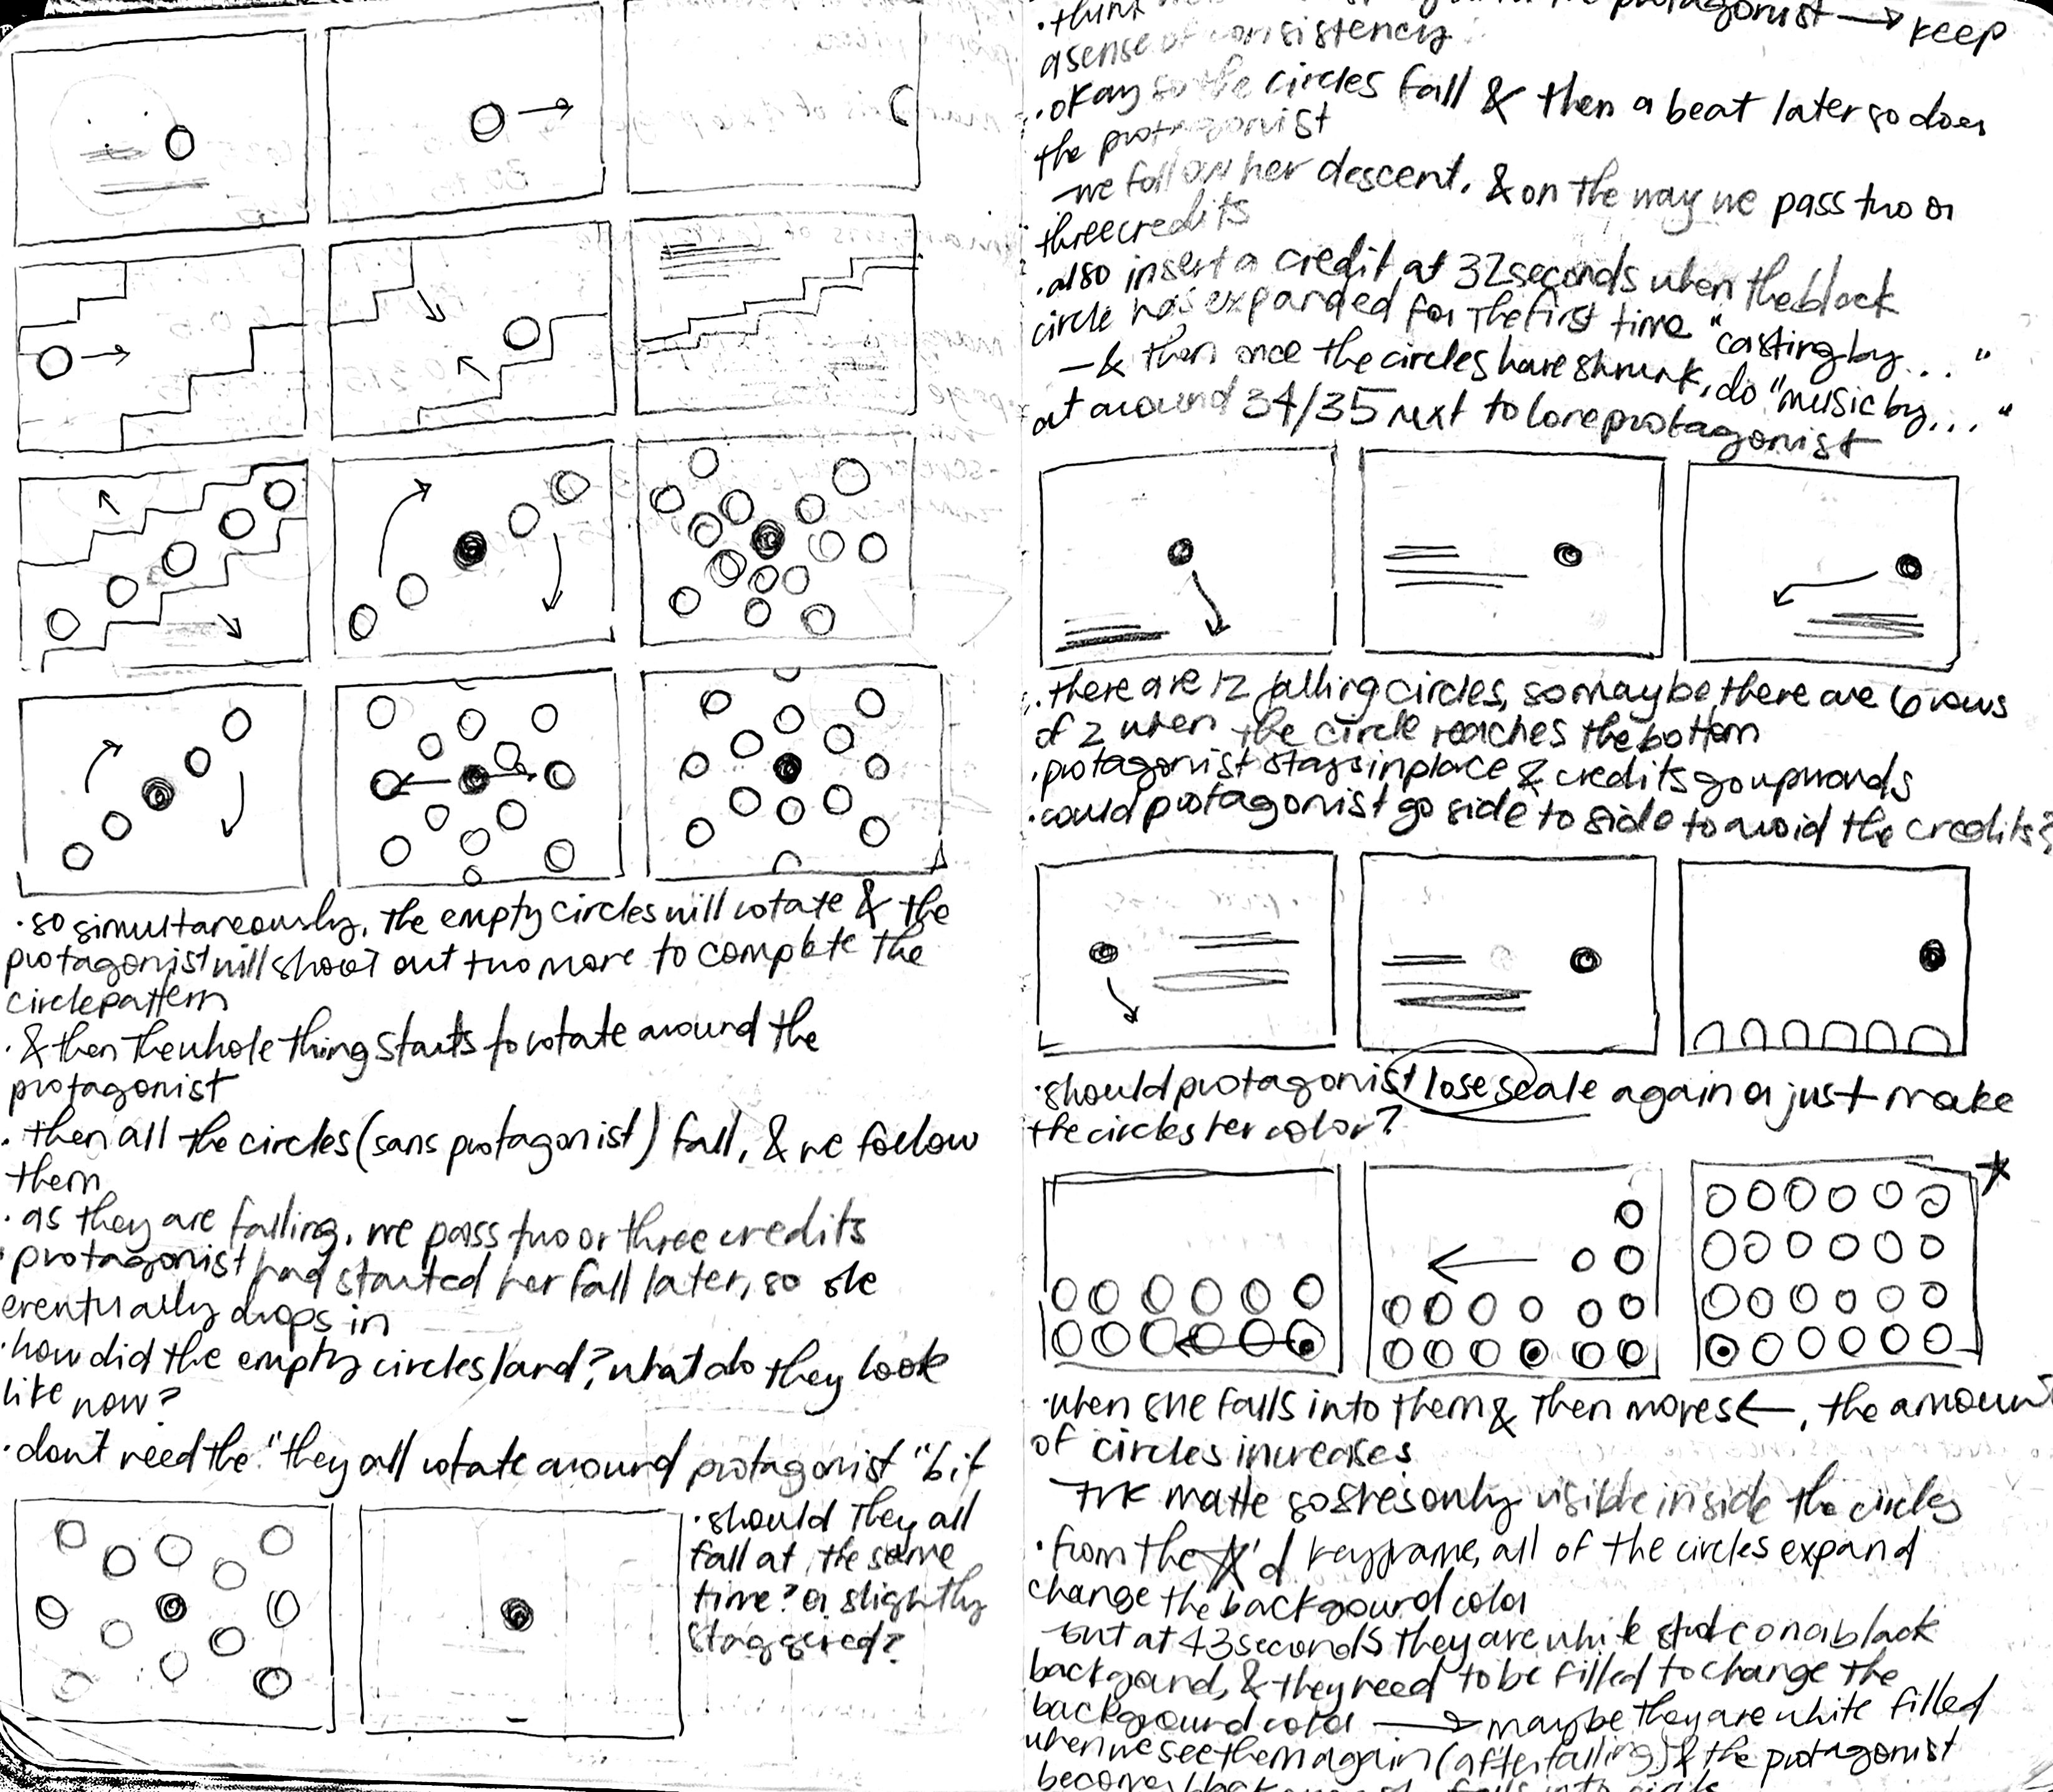 ·so simultaneously, the empty circles will rotate & the
protagonist will shoot out two more to complete the
circle pattern
·& then the whole thing starts to rotate around the
protagonist
·then all the circles (sans protagonist) fall, & we follow
them
·as they are falling, we pass two or three credits
·protagonist had started her fall later, so she
eventually drops in
·how did the empty circles land? what do they look
like now?
·don't need the "they all rotate around protagonist" bit
·should they all
fall at the same
time? or slightly
staggered?
·think protagonist → keep
a sense of consistency
·okay so the circles fall & then a beat later so does
the protagonist
-we follow her descent, & on the way we pass two or
three credits
·also insert a credit at 32 seconds when the black
circle has expanded for the first time "casting by..."
-& then once the circles have shrunk, do "music by..."
at around 34/35 next to lone protagonist
·there are 12 falling circles, so maybe there are 6 rows
of 2 when the circle reaches the bottom
·protagonist stays in place & credits go upwards
·could protagonist go side to side to avoid the credits?
·should protagonist lose scale again or just make
the circles her color?
·when she falls into them & then moves ←, the amount
of circles increases
-trk matte so she's only visible inside the circles
·from the ★'d keyframe, all of the circles expand
change the background color
-but at 43 seconds they are white stroke on a black
background, & they need to be filled to change the
background color → maybe they are white filled
when we see them again (after falling) & the protagonist
becomes black